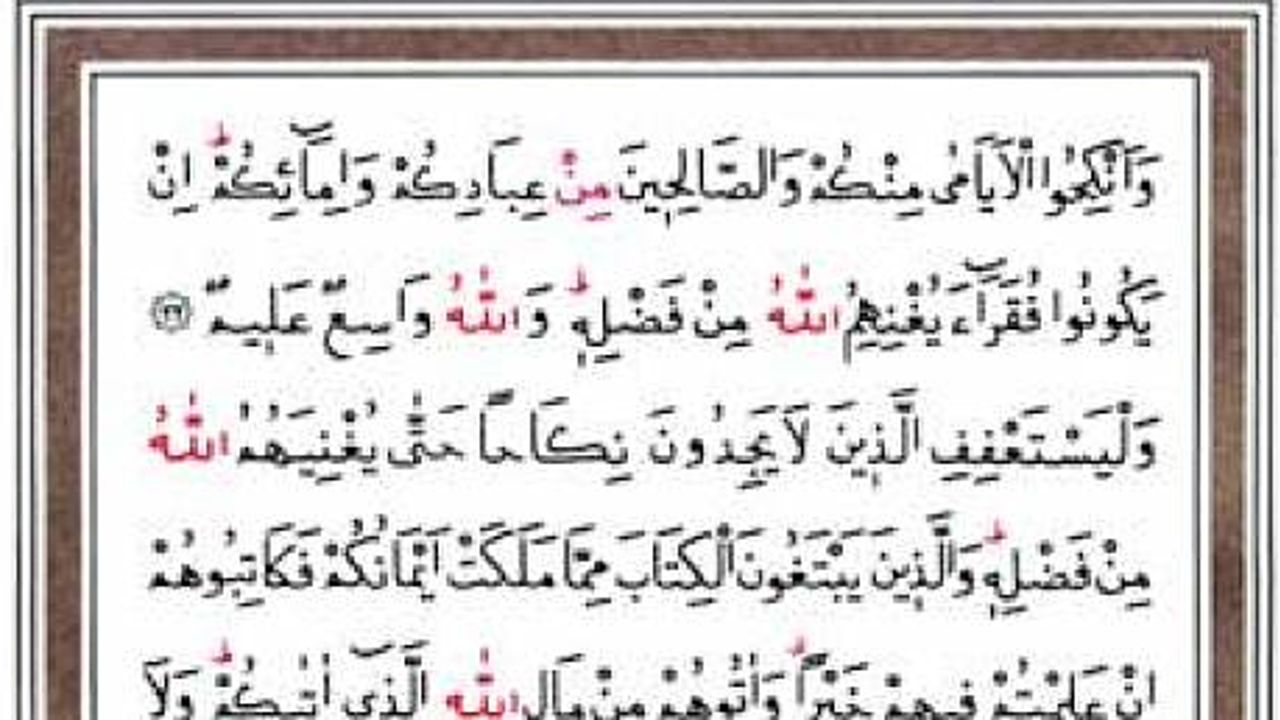 وَاَنْكِحُوا الْاَيَامٰى مِنْكُمْ وَالصَّالِحٖينَ مِنْ عِبَادِكُمْ وَاِمَٓائِكُمْۜ اِنْ
يَكُونُوا فُقَرَٓاءَ يُغْنِهِمُ اللّٰهُ مِنْ فَضْلِهٖۜ وَاللّٰهُ وَاسِعٌ عَلٖيمٌ ﴿٣٢﴾
وَلْيَسْتَعْفِفِ الَّذٖينَ لَا يَجِدُونَ نِكَاحاً حَتّٰى يُغْنِيَهُمُ اللّٰهُ
مِنْ فَضْلِهٖۜ وَالَّذٖينَ يَبْتَغُونَ الْكِتَابَ مِمَّا مَلَكَتْ اَيْمَانُكُمْ فَكَاتِبُوهُمْ
اِنْ عَلِمْتُمْ فٖيهِمْ خَيْراًۗ وَاٰتُوهُمْ مِنْ مَالِ اللّٰهِ الَّذٖٓي اٰتٰيكُمْۜ وَلَا